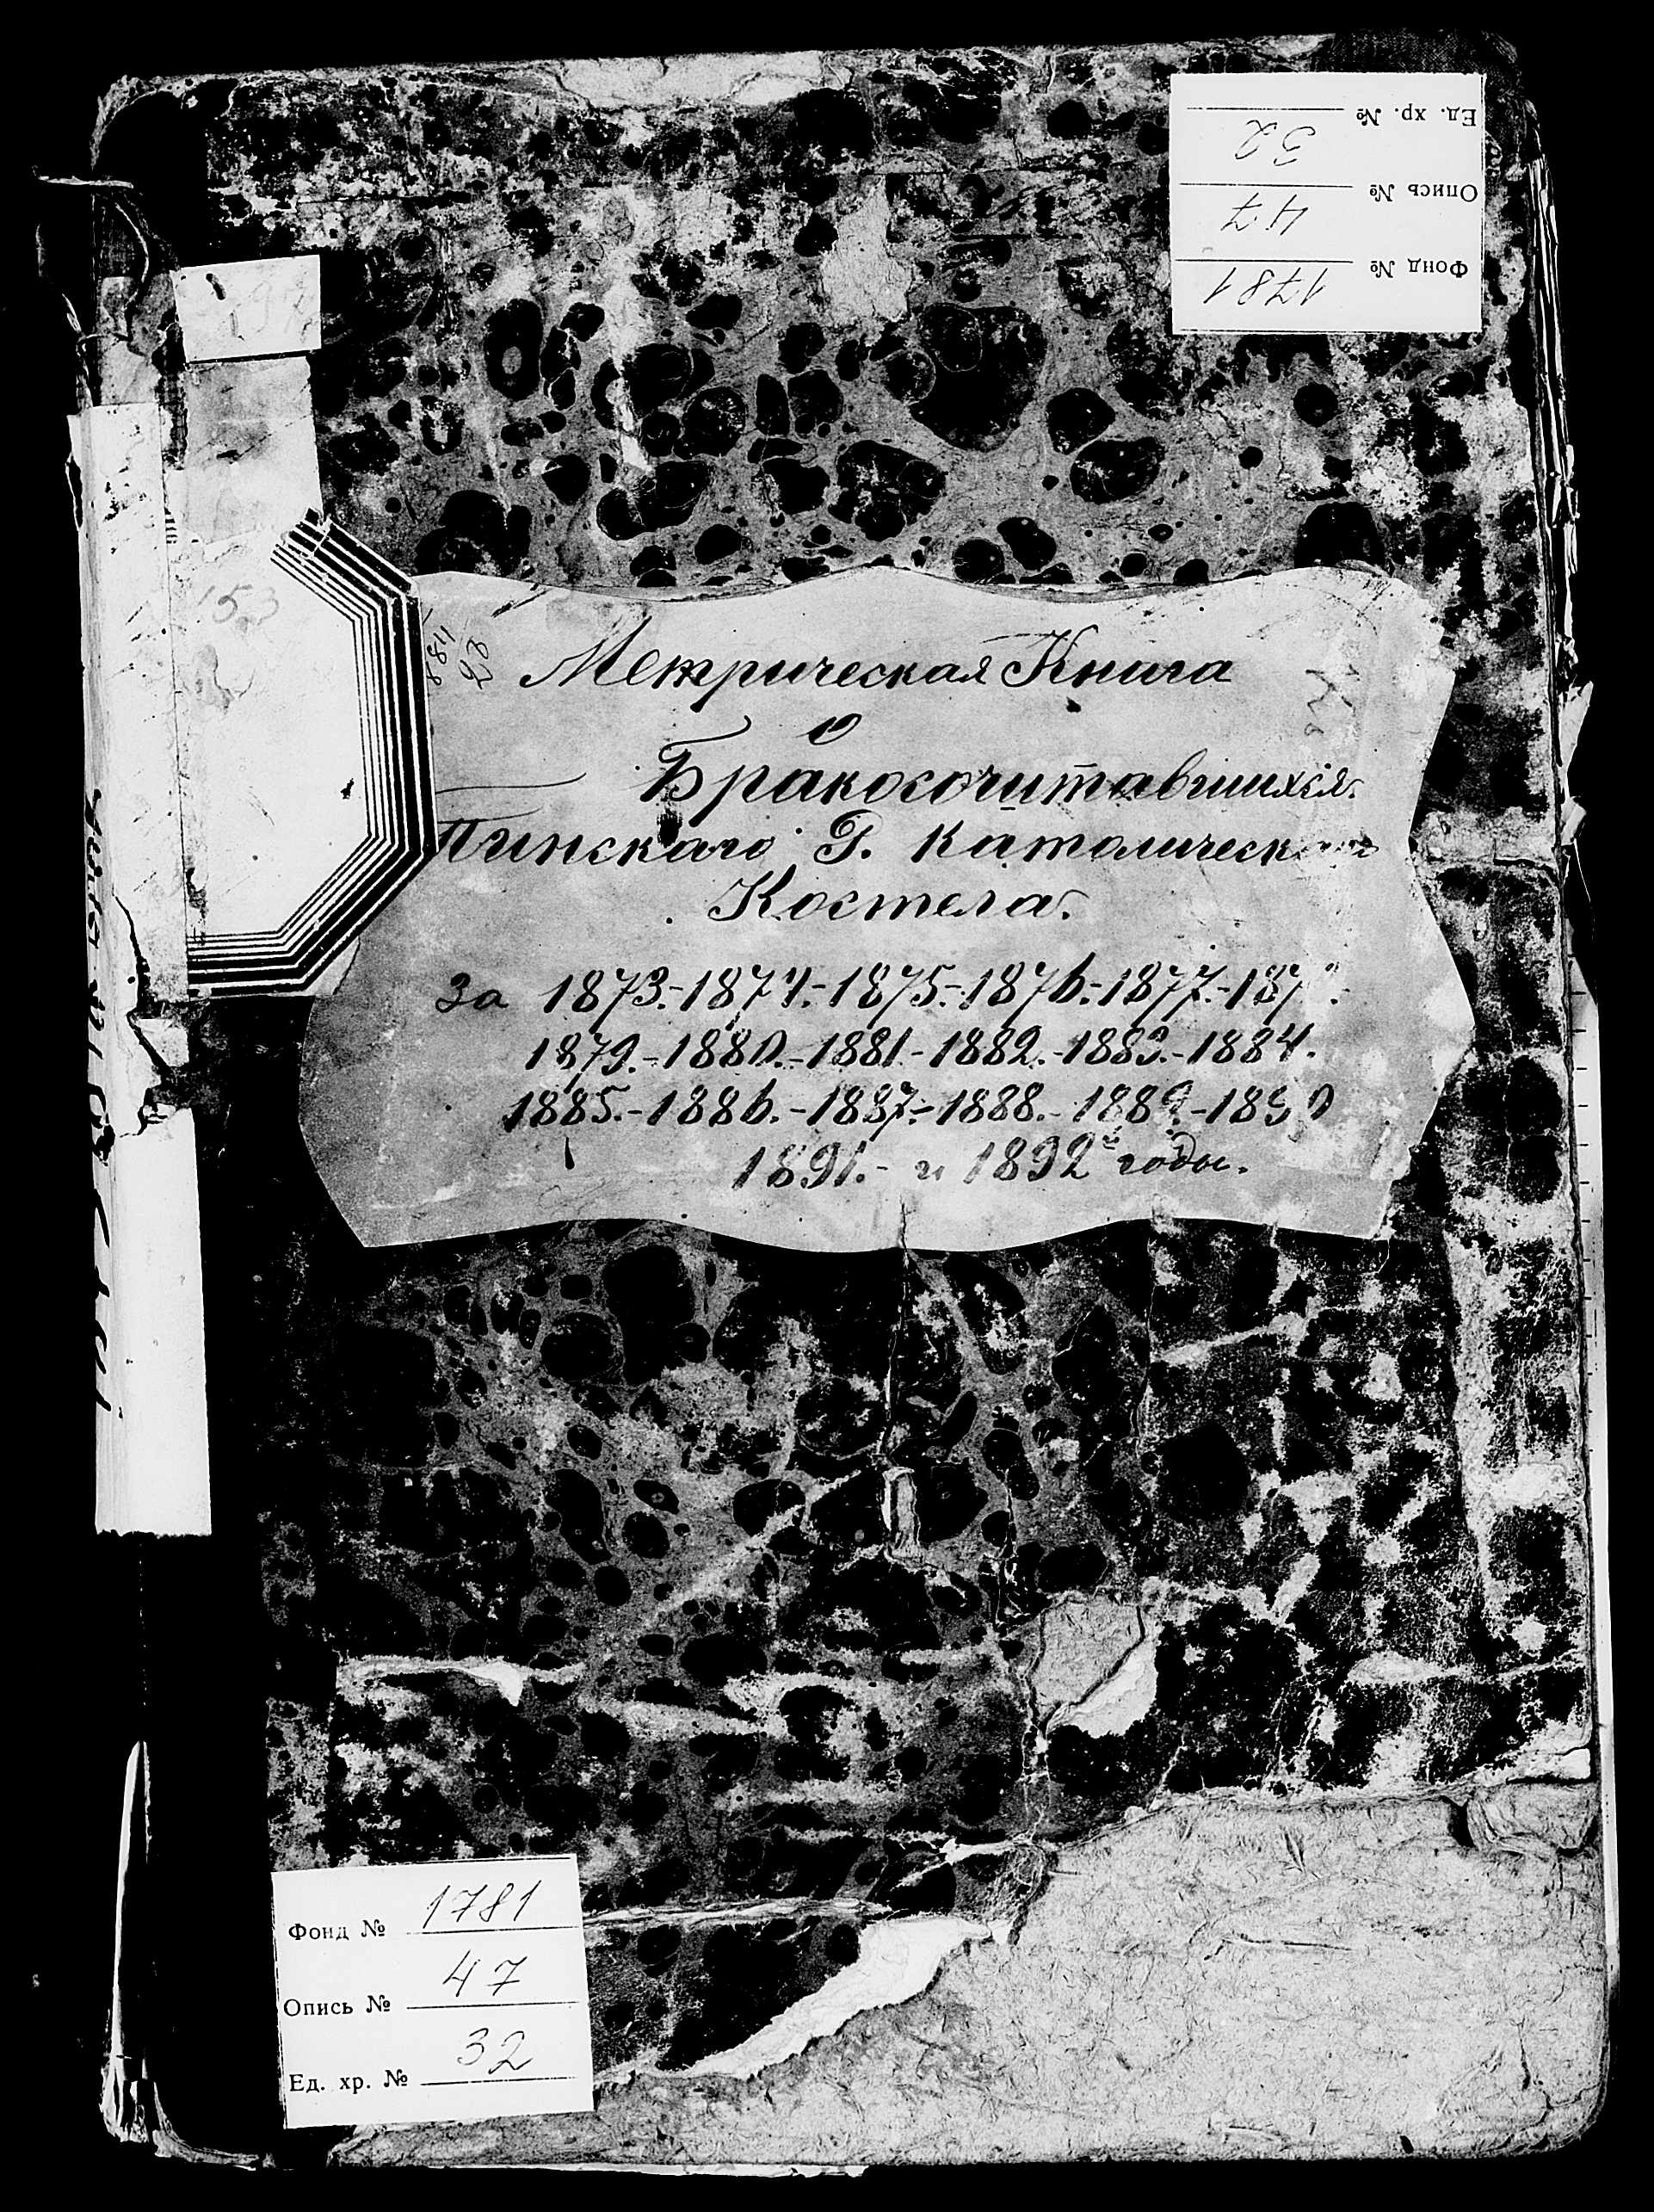 Ед. хр. № 32
Опись № 47
Фонд № 1781
153
Метрическая Книга
о
Бракосочитавшихся
Пинскаго Р. Католическаго
Костела.
за 1873.-1874.-1875.-1876.-1877.-187
1879.-1880.-1881.-1882.-1883.-1884.
1885.-1886.-1887.-1888.-1889.-1890
1891.- и 1892й годы.
Фонд № 1781
Опись № 47
Ед. хр. № 32